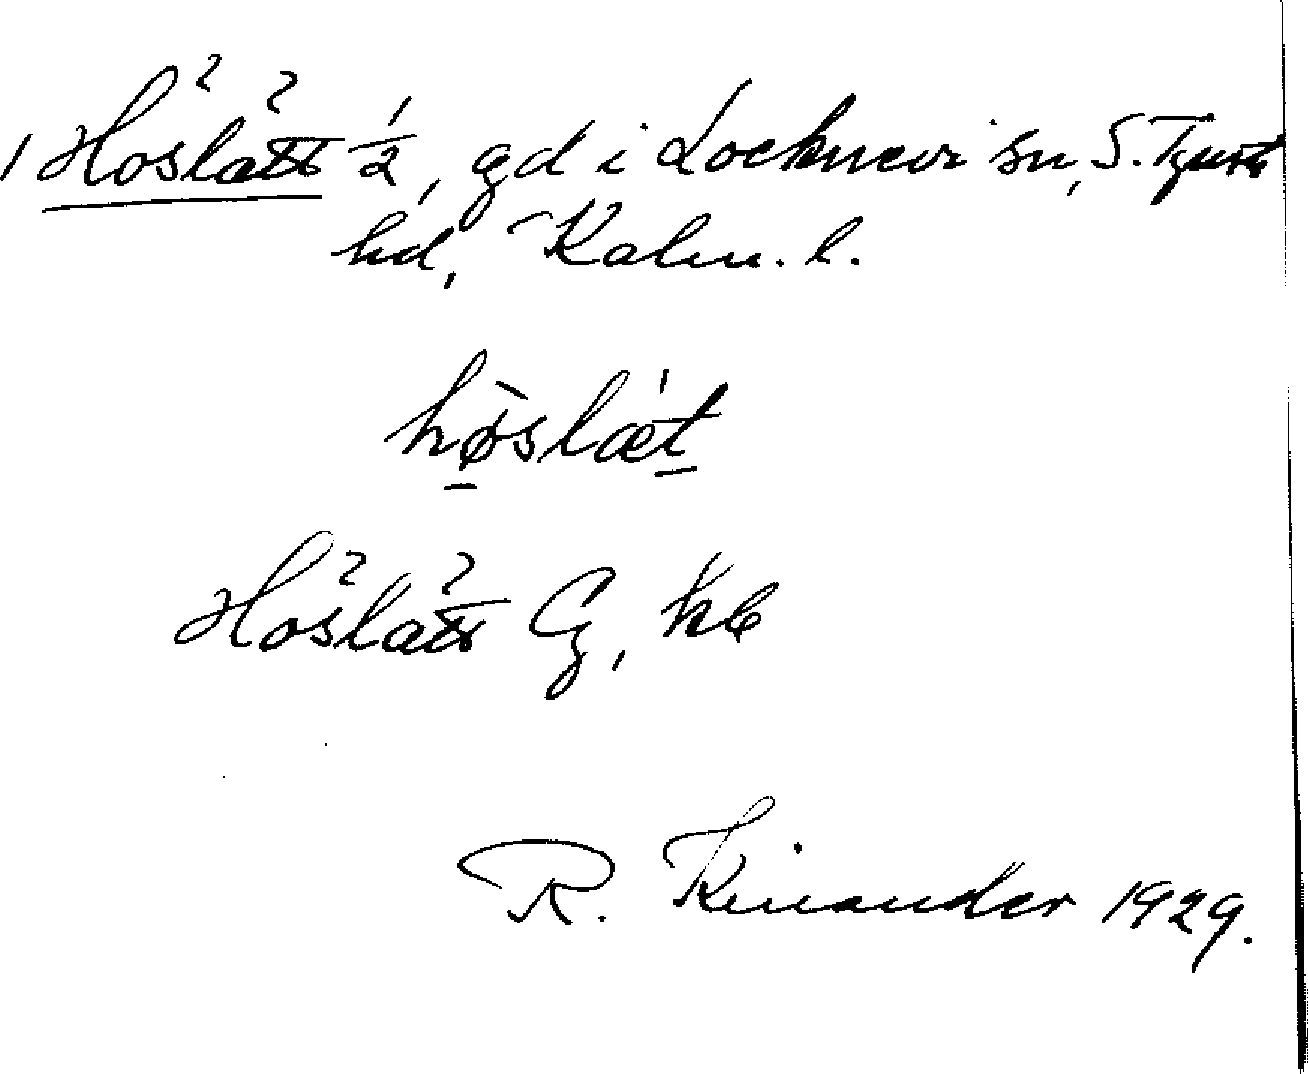 Höslätt 1/2, gd i Locknevi sn, S. Tjust
hd, Kalm. l.
hø̀slǽt
Höslätt Cg, kb
R. Kinander 1929.